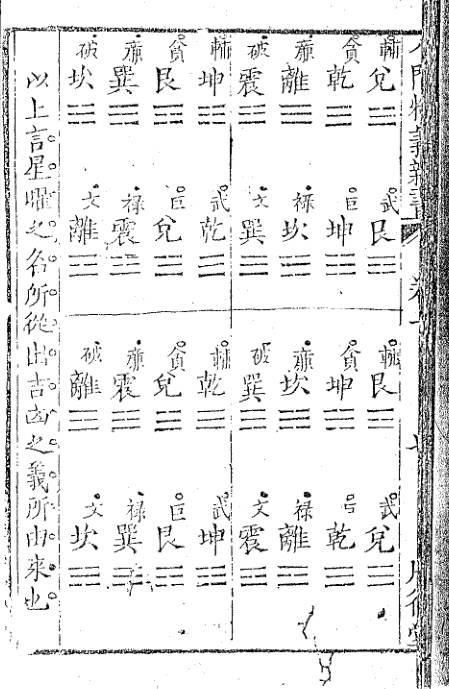 輔兌 武艮 輔艮 武兌
貪乾 巨坤 貪坤 巨乾
廉離 禄坎 廉坎 禄離
破震 文巽 破巽 文震
輔坤 武乾 輔乾 武坤
貪艮 巨兌 貪兌 巨艮
廉巽 禄震 廉震 禄巽
破坎 文離 破離 文坎
以上言星曜之名所從出吉凶之義所由來也